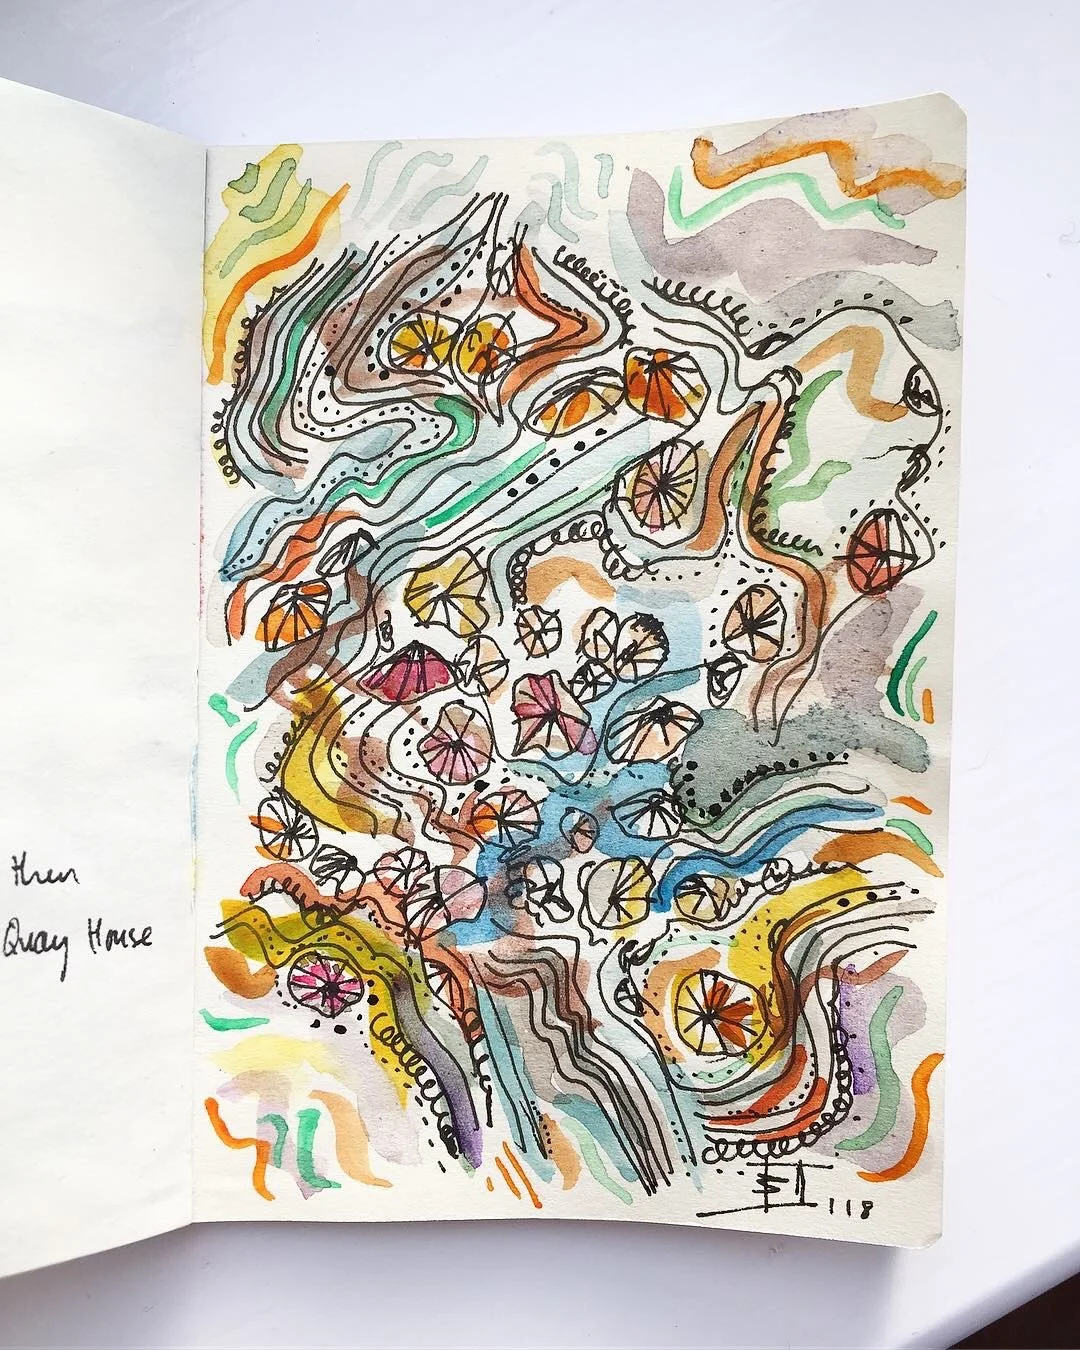 then
Quay House
118